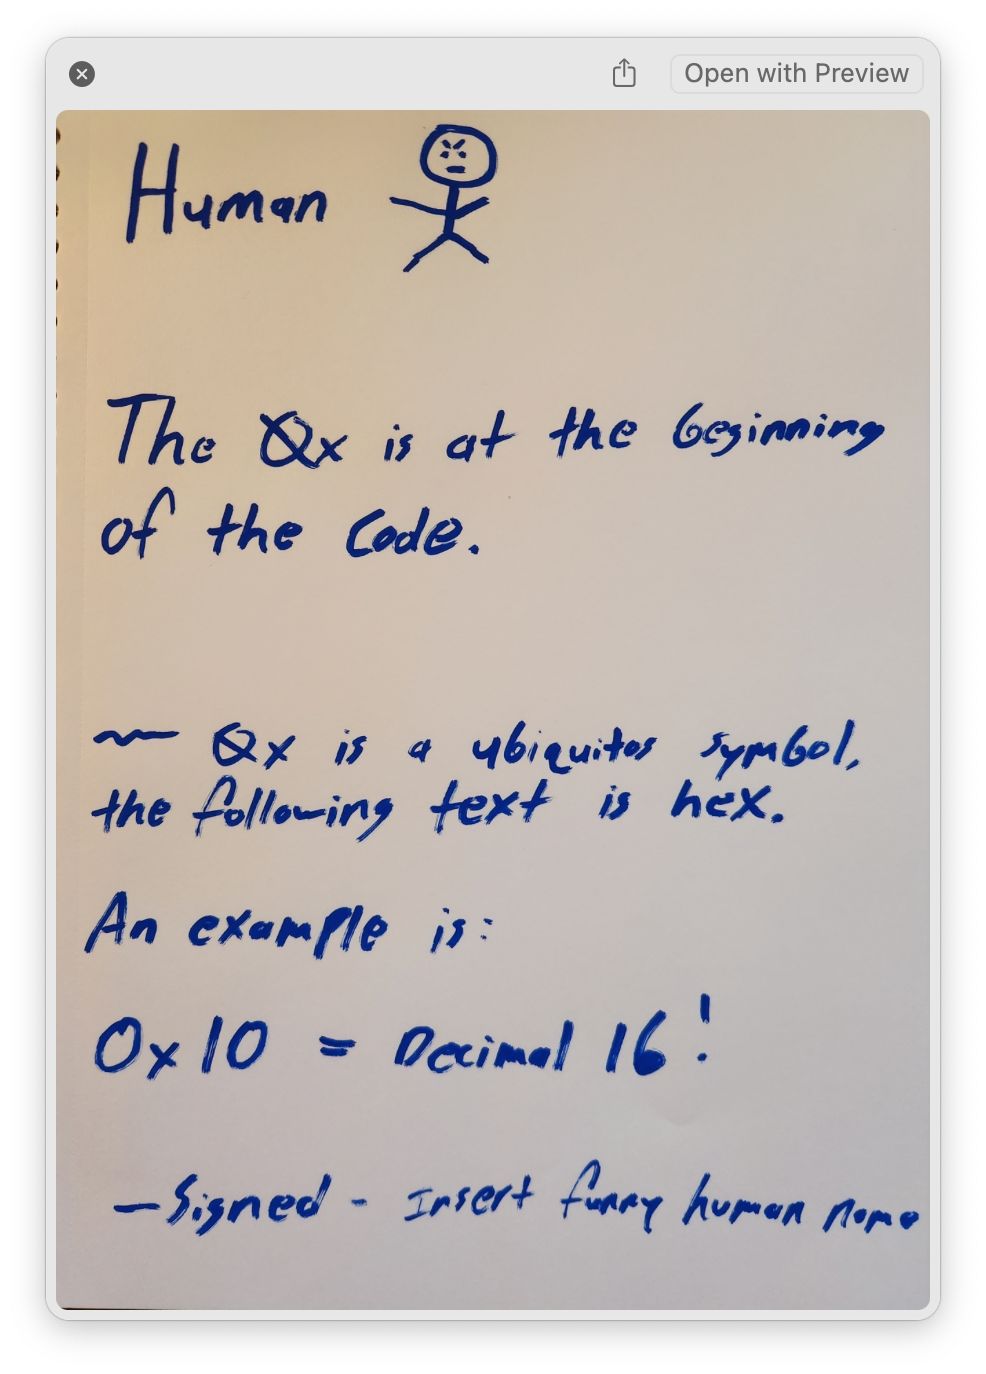 Open with Preview
Human
The 0x is at the beginning
of the code.
~ 0x is a ubiquitos symbol,
the following text is hex.
An example is:
0x10 = Decimal 16!
—Signed - Insert funny human name